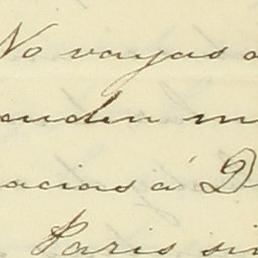 No vayas a
auden m
acias á D
Paris sin